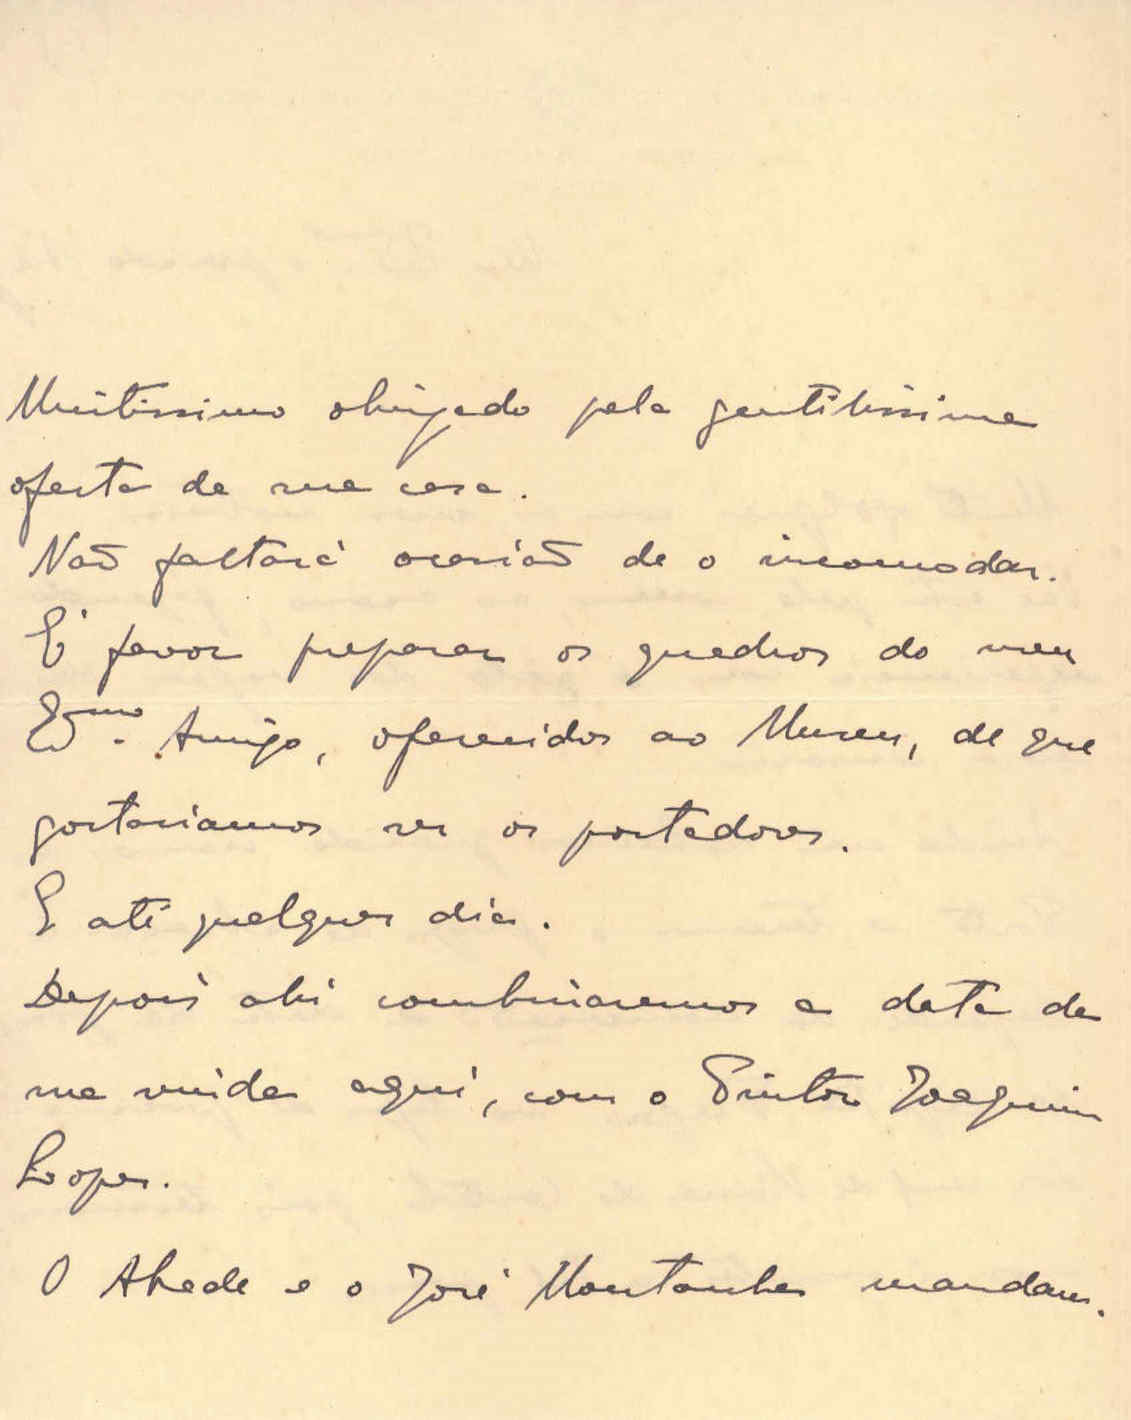 Muitissimo obrigado pela gentilissima
oferta de sua casa.
Não faltará ocasião de o incomodar.
É favor preparar os quadros do meu
Exmo. Amigo, oferecidos ao Museu, de que
gostariamos ser os portadores.
E até qualquer dia.
Depois ahi combinaremos a data da
sua vinda aqui, com o Pintor Joaquim
Lopes.
O Abade e o José Montanha mandam.